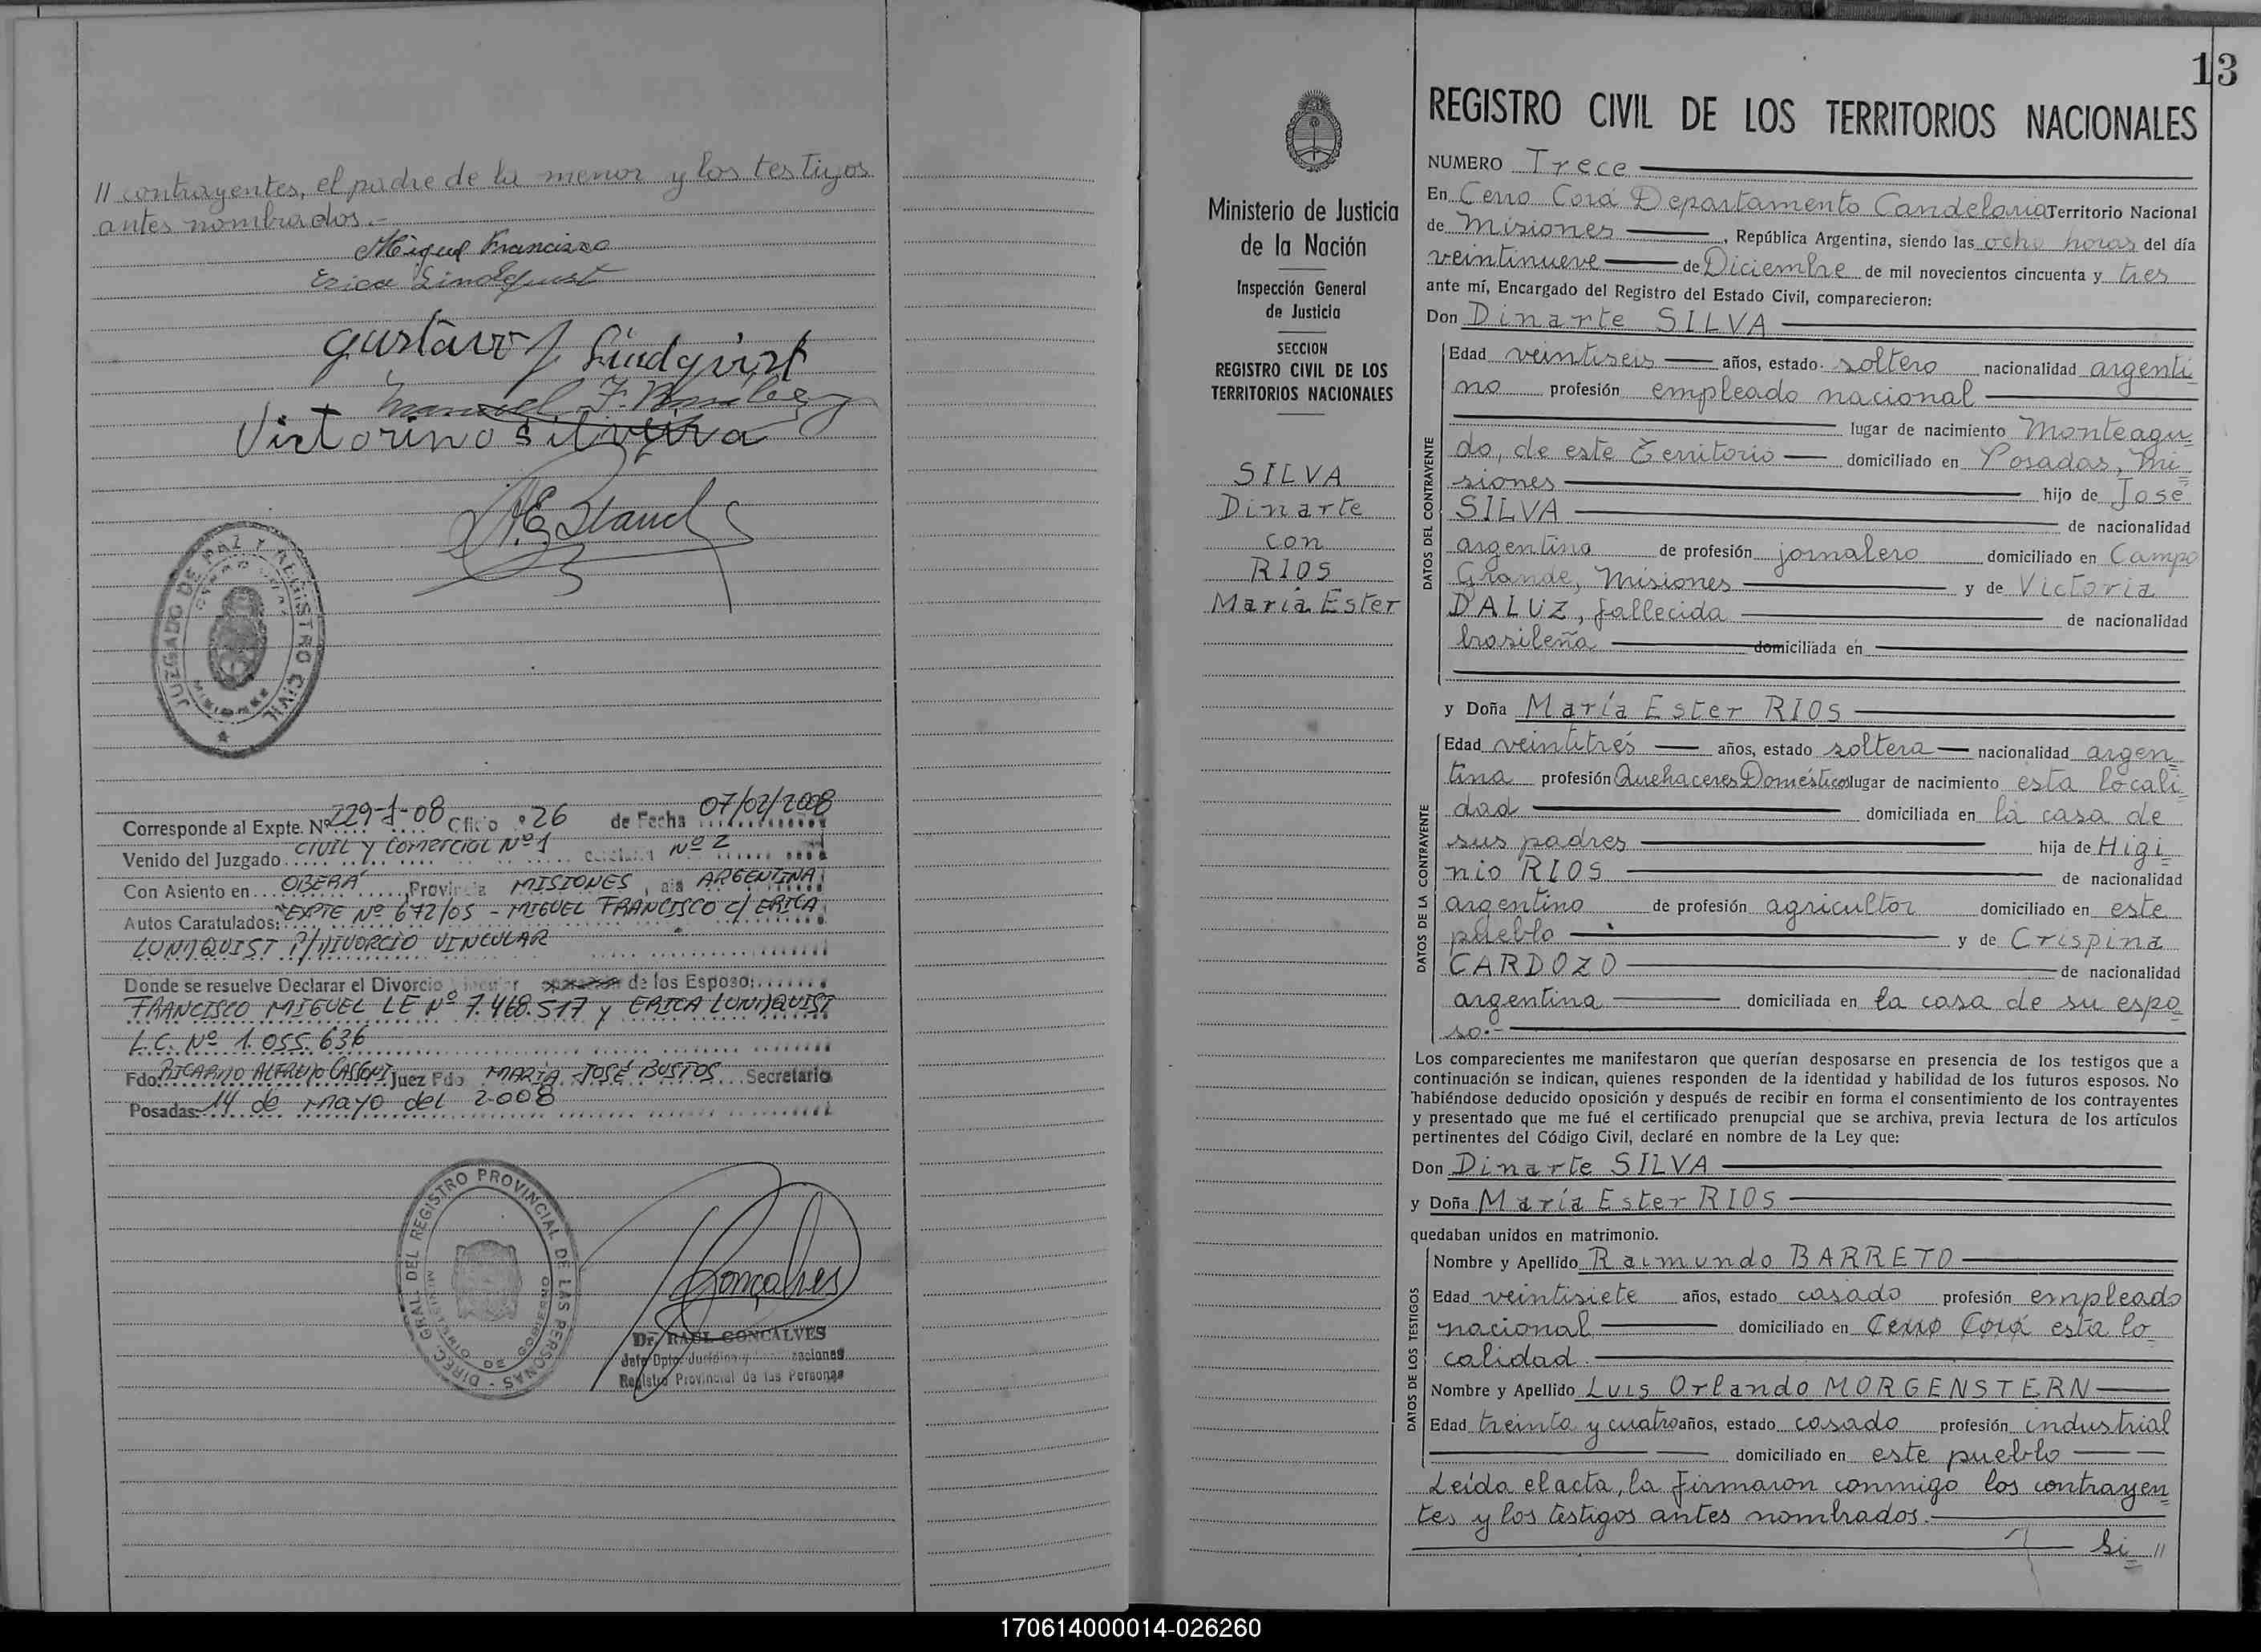 // contrayentes, el padre de la menor y los testigos
antes nombrados.-
Miguel Francisco
Erica Lindquist
Gustavo J. Lindqvist
Manuel F.
Victorino Silveira
JUZGADO DE PAZ Y REGISTRO CIVIL
CERRO CORA
MISIONES
Corresponde al Expte. Nº 229-J-08 Oficio 26 de Fecha 07/02/2008
Venido del Juzgado CIVIL Y COMERCIAL Nº 1 Nº 2
Con Asiento en OBERÁ Provincia MISIONES, ARGENTINA
Autos Caratulados: "EXPTE Nº 672/05 - MIGUEL FRANCISCO C/ ERICA
LUNDQUIST P/ DIVORCIO VINCULAR
Donde se resuelve Declarar el Divorcio Vincular de los Esposo:
FRANCISCO MIGUEL LE Nº 7.468.517 y ERICA LUNDQUIST
L.C. Nº 1.055.636
Fdo. RICARDO ALFREDO CASSONI Juez Fdo MARIA JOSÉ BUSTOS Secretaria
Posadas: 14 de mayo del 2008
DIREC. GRAL. DEL REGISTRO PROVINCIAL DE LAS PERSONAS
MINISTERIO DE GOBIERNO
Goncalves
Dr. RAUL GONCALVES
Jefe Dpto. Jurídico y
Registro Provincial de las Personas
13
Ministerio de Justicia
de la Nación
Inspección General
de Justicia
SECCION
REGISTRO CIVIL DE LOS
TERRITORIOS NACIONALES
SILVA
Dinarte
con
RIOS
María Ester
REGISTRO CIVIL DE LOS TERRITORIOS NACIONALES
NUMERO Trece
En Cerro Corá Departamento Candelaria Territorio Nacional
de Misiones, República Argentina, siendo las ocho horas del día
veintinueve de Diciembre de mil novecientos cincuenta y tres
ante mí, Encargado del Registro del Estado Civil, comparecieron:
Don Dinarte SILVA
DATOS DEL CONTRAYENTE
Edad veintiseis años, estado soltero nacionalidad argenti=
no profesión empleado nacional
lugar de nacimiento Monteagu=
do, de este Territorio domiciliado en Posadas, Mi=
siones hijo de José
SILVA de nacionalidad
argentina de profesión jornalero domiciliado en Campo
Grande, Misiones y de Victoria
DALUZ, fallecida de nacionalidad
brasileña domiciliada en
y Doña María Ester RIOS
DATOS DE LA CONTRAYENTE
Edad veintitrés años, estado soltera nacionalidad argen=
tina profesión Quehaceres Domésticos lugar de nacimiento esta locali=
dad domiciliada en la casa de
sus padres hija de Higi=
nio RIOS de nacionalidad
argentino de profesión agricultor domiciliado en este
pueblo y de Crispina
CARDOZO de nacionalidad
argentina domiciliada en la casa de su espo=
so.-
Los comparecientes me manifestaron que querían desposarse en presencia de los testigos que a
continuación se indican, quienes responden de la identidad y habilidad de los futuros esposos. No
habiéndose deducido oposición y después de recibir en forma el consentimiento de los contrayentes
y presentado que me fué el certificado prenupcial que se archiva, previa lectura de los artículos
pertinentes del Código Civil, declaré en nombre de la Ley que:
Don Dinarte SILVA
y Doña María Ester RIOS
quedaban unidos en matrimonio.
DATOS DE LOS TESTIGOS
Nombre y Apellido Raimundo BARRETO
Edad veintisiete años, estado casado profesión empleado
nacional domiciliado en Cerro Corá esta lo=
calidad.
Nombre y Apellido Luis Orlando MORGENSTERN
Edad treinta y cuatro años, estado casado profesión industrial
domiciliado en este pueblo
Leída el acta, la firmaron conmigo los contrayen=
tes y los testigos antes nombrados.
Si= //
170614000014-026260